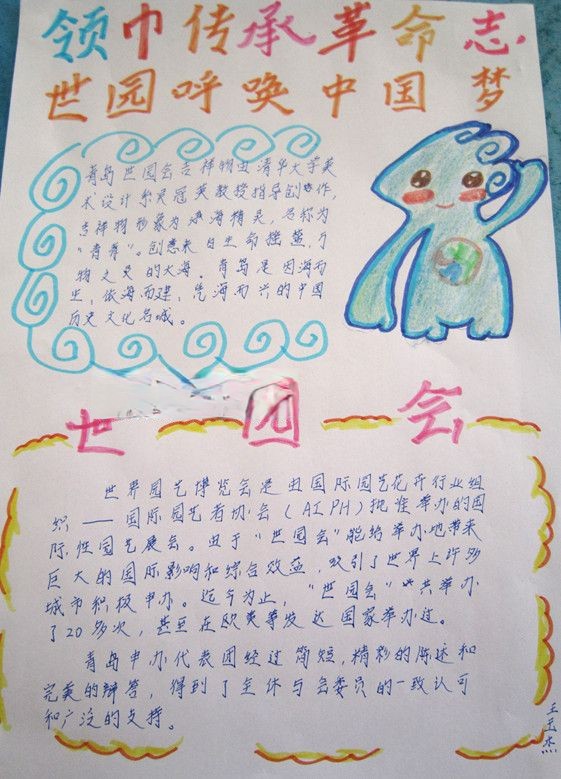 领巾传承革命志
世园呼唤中国梦
青岛世园会吉祥物由清华大学美
术设计系吴冠英教授指导创作,
吉祥物形象为海精灵,名称为
“青青”。创意来自生命摇蓝,万
物之灵的大海。青岛是因海而
生,依海而建,凭海而兴的中国
历史文化名城。
世园会
世界园艺博览会是由国际园艺花卉行业组
织——国际园艺者协会(AIPH)批准举办的国
际性园艺展会。由于“世园会”能给举办地带来
巨大的国际影响和综合效益,吸引了世界上许多
城市积极申办。迄今为止,“世园会”共举办
了20多次,甚至在欧美等发达国家举办过。
青岛申办代表团经过简短,精彩的陈述和
完美的辩答,得到了全体与会委员的一致认可
和广泛的支持。
王玉杰